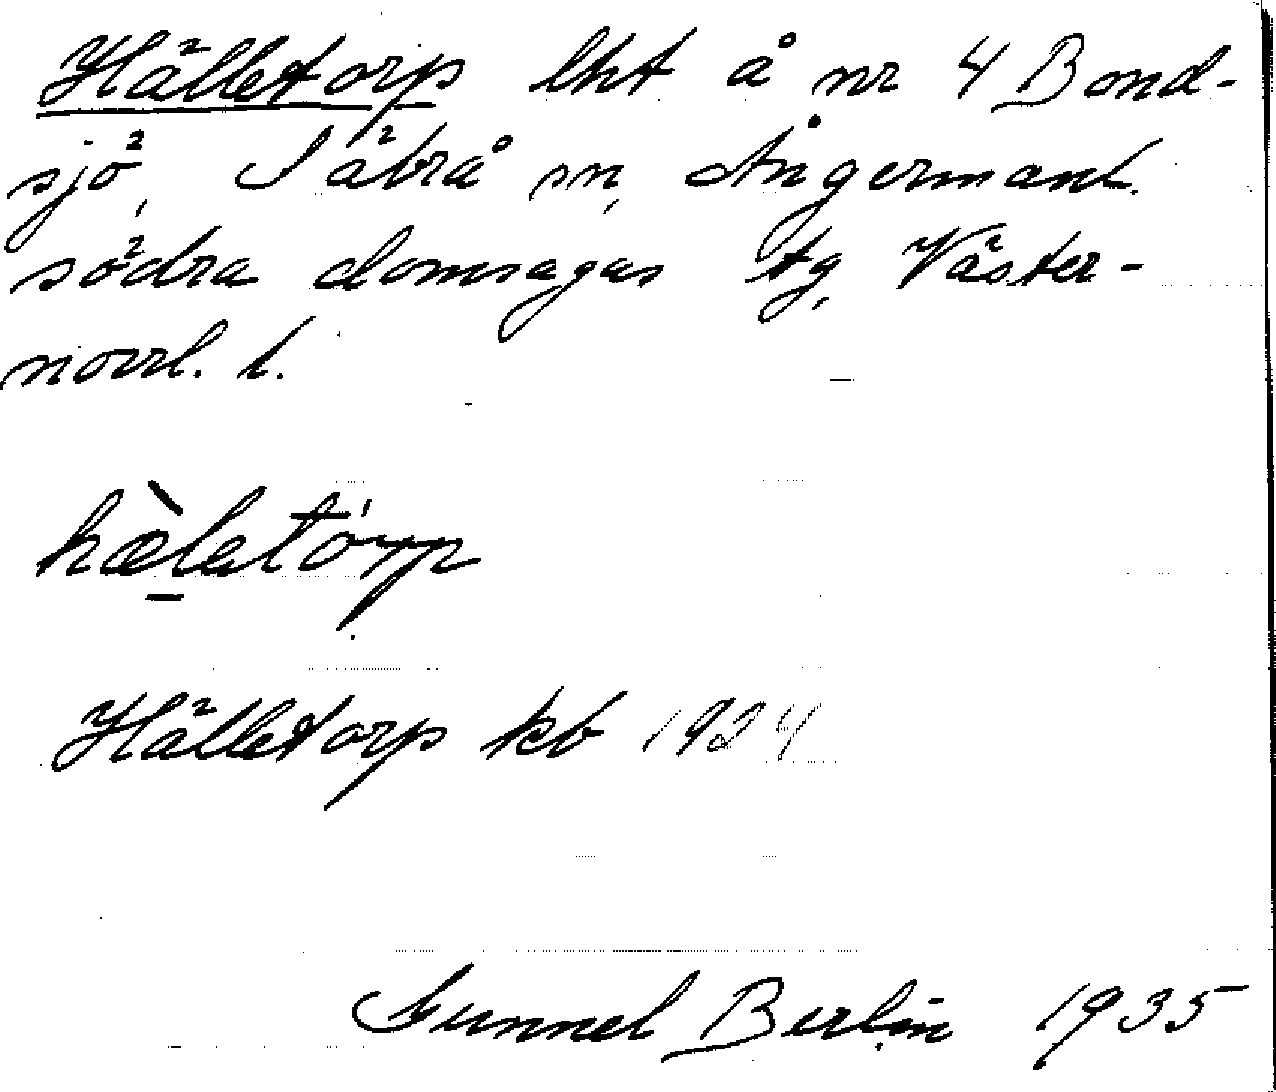 Hälletorp lht å nr 4 Bond-
sjö, Säbrå sn, Ångermanl.
södra domsagas tg, Väster-
norrl. l.
hæ̀lətórp
Hälletorp kb 1924
Gunnel Berlin 1935